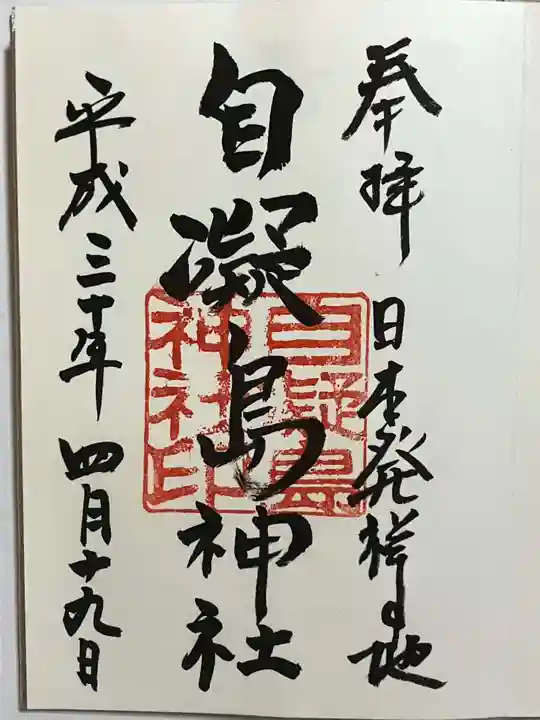 奉拝
日本発祥の地
自凝島神社
自凝島
神社印
平成三十年四月十九日